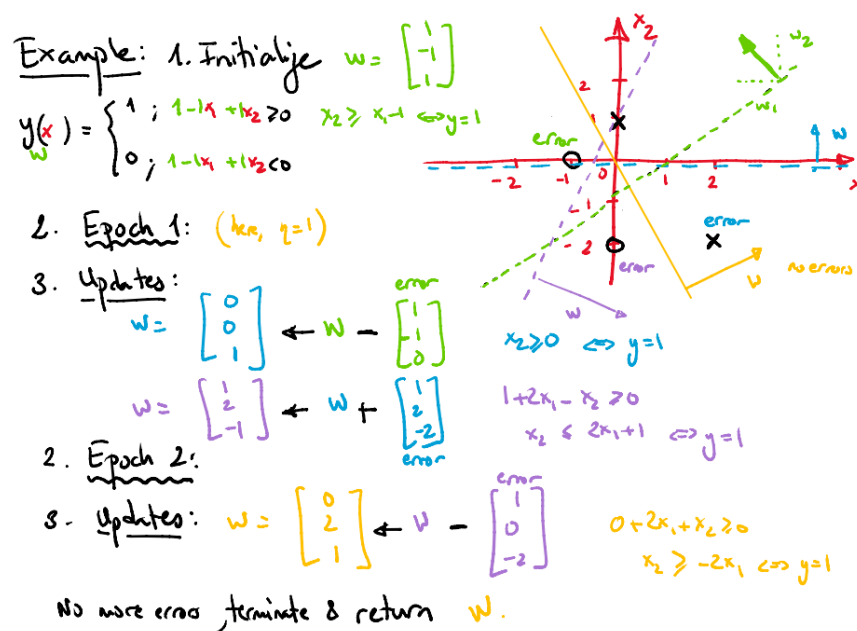 Example: 1. Initialize w = [1 -1 1]
y_w(x) = { 1 ; 1-1x₁ +1x₂ ≥0 x₂ ≥ x₁-1 ⇔ y=1
0 ; 1-1x₁ +1x₂ <0
2. Epoch 1: (here, η=1)
3. Updates:
error
w = [0 0 1] ← w - [1 -1 0] x₂ ≥ 0 ⇔ y=1
w = [1 2 -1] ← w + [1 2 -2] 1+2x₁-x₂ ≥0
x₂ ≤ 2x₁+1 ⇔ y=1
error
2. Epoch 2:
error
3. Updates: w = [0 2 1] ← w - [1 0 -2] 0+2x₁+x₂ ≥0
x₂ ≥ -2x₁ ⇔ y=1
No more errors, terminate & return w.
x₂
w₂
2
w₁
1
error
w
-2 -1 0 1 2 x
-1
error
-2
error
w no errors
w